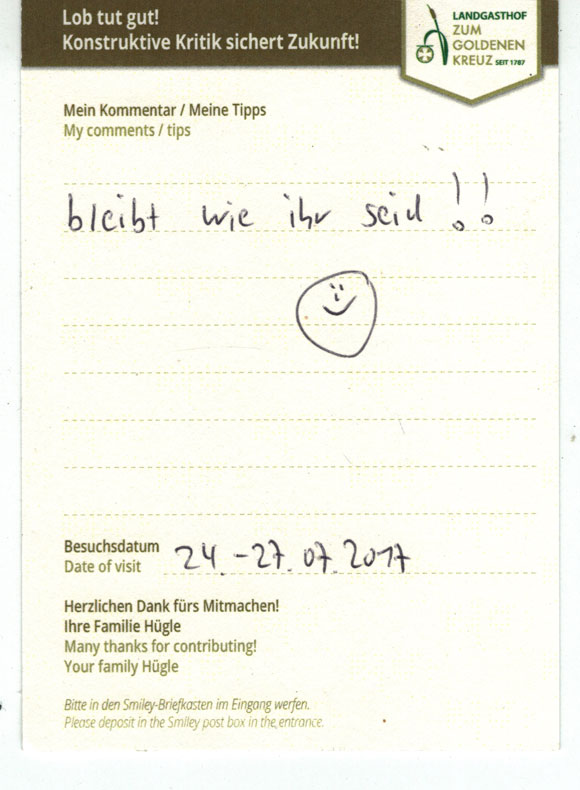 Lob tut gut!
Konstruktive Kritik sichert Zukunft!
LANDGASTHOF
ZUM
GOLDENEN
KREUZ SEIT 1787
Mein Kommentar / Meine Tipps
My comments / tips
bleibt wie ihr seid !!
Besuchsdatum
Date of visit
24. - 27. 07. 2017
Herzlichen Dank fürs Mitmachen!
Ihre Familie Hügle
Many thanks for contributing!
Your family Hügle
Bitte in den Smiley-Briefkasten im Eingang werfen.
Please deposit in the Smiley post box in the entrance.